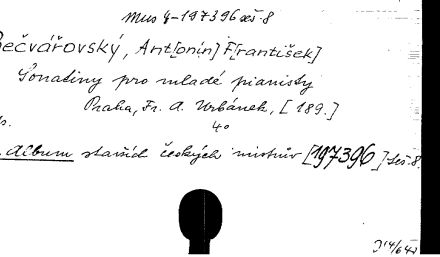 Mus 4-197396 seš. 8
Bečvářovský, Ant[onín] F[rantišek]
Sonatiny pro mladé pianisty
Praha, Fr. A. Urbánek, [189.]
4°
Album starších českých mistrův [197396] seš. 8.